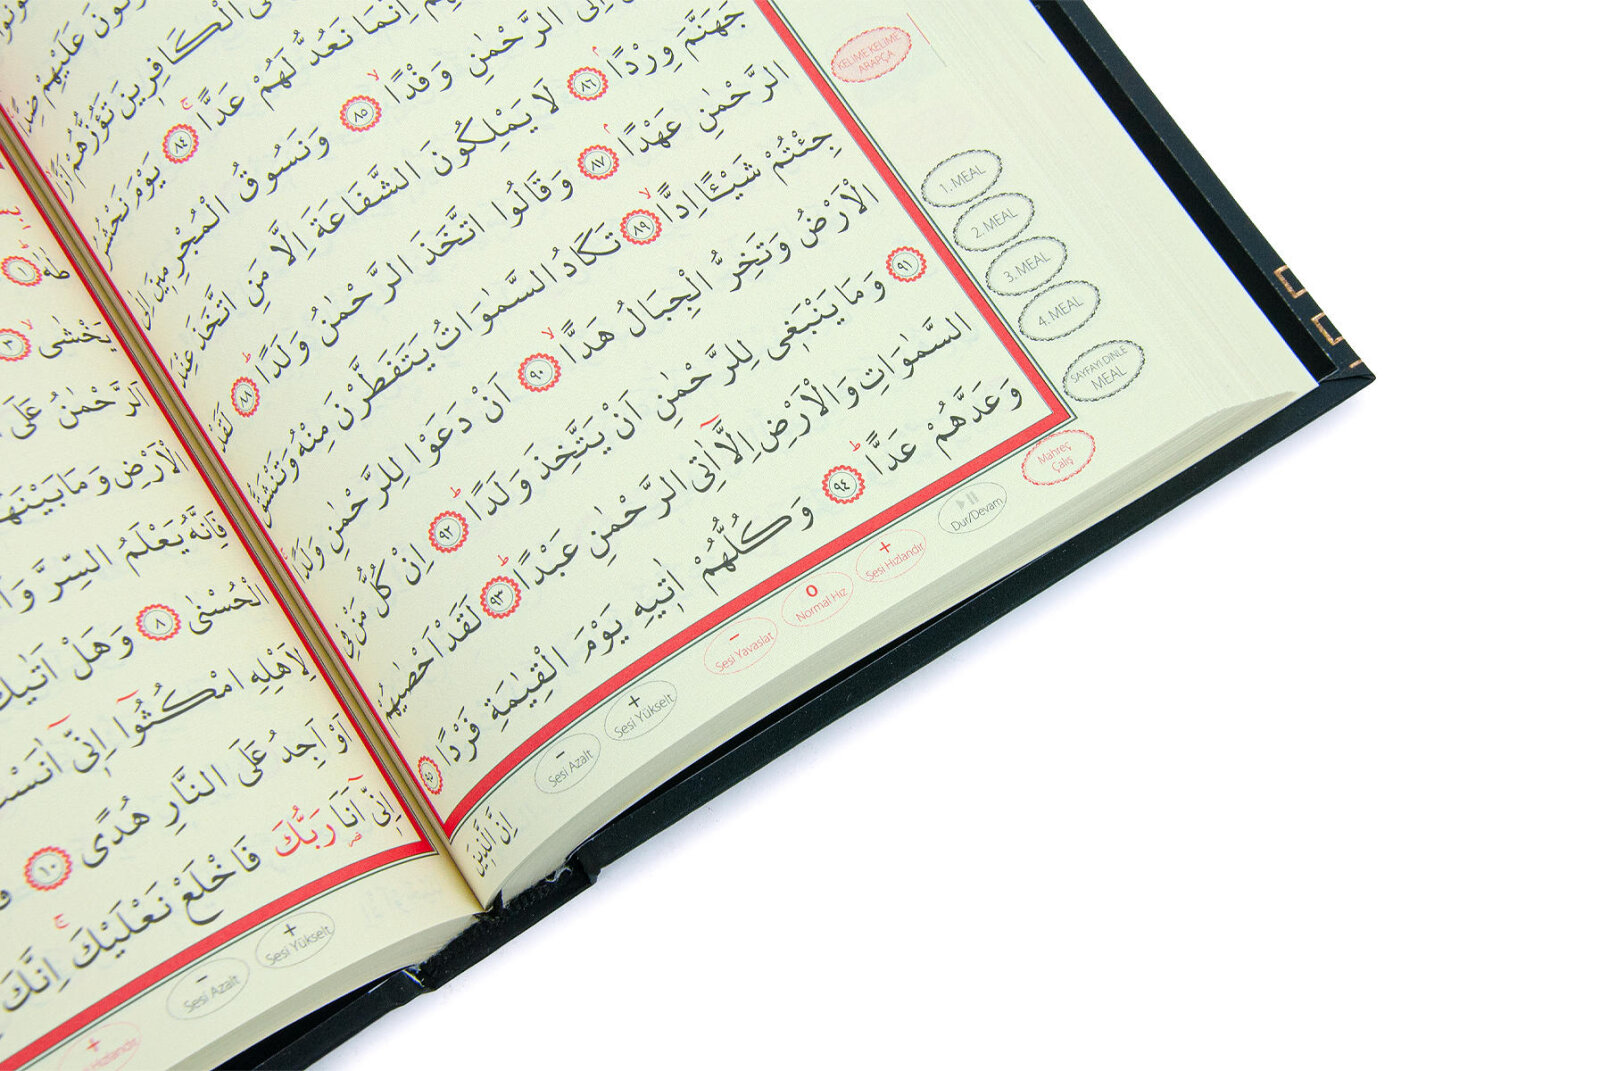 عَلَيْهِمْ ضِدًّا
الْكَافِرِينَ تَؤُزُّهُمْ اَزًّا
اِنَّمَا نَعُدُّ لَهُمْ عَدًّا ٨٤ يَوْمَ نَحْشُرُ
اِلَى الرَّحْمٰنِ وَفْدًا ٨٥ وَنَسُوقُ الْمُجْرِمِينَ اِلٰى
جَهَنَّمَ وِرْدًا ٨٦ لَا يَمْلِكُونَ الشَّفَاعَةَ اِلَّا مَنِ اتَّخَذَ عِنْدَ
الرَّحْمٰنِ عَهْدًا ٨٧ وَقَالُوا اتَّخَذَ الرَّحْمٰنُ وَلَدًا ٨٨ لَقَدْ
جِئْتُمْ شَيْـًٔا اِدًّا ٨٩ تَكَادُ السَّمٰوَاتُ يَتَفَطَّرْنَ مِنْهُ وَتَنْشَقُّ
الْاَرْضُ وَتَخِرُّ الْجِبَالُ هَدًّا ٩٠ اَنْ دَعَوْا لِلرَّحْمٰنِ وَلَدًا
٩١ وَمَا يَنْبَغِي لِلرَّحْمٰنِ اَنْ يَتَّخِذَ وَلَدًا ٩٢ اِنْ كُلُّ مَنْ فِي
السَّمٰوَاتِ وَالْاَرْضِ اِلَّٓا اٰتِي الرَّحْمٰنِ عَبْدًا ٩٣ لَقَدْ اَحْصٰيهُمْ
وَعَدَّهُمْ عَدًّا ٩٤ وَكُلُّهُمْ اٰتِيهِ يَوْمَ الْقِيٰمَةِ فَرْدًا ٩٥
اِنَّ الَّذِينَ
KELİME KELİME ARAPÇA
1. MEAL
2. MEAL
3. MEAL
4. MEAL
SAYFAYI DİNLE MEAL
Mahreç Çalış
Dur/Devam
+ Sesi Hızlandır
0 Normal Hız
- Sesi Yavaşlat
+ Sesi Yükselt
- Sesi Azalt
طٰهٰ ١
يَخْشٰى ٣
اَلرَّحْمٰنُ عَلَى
الْاَرْضِ وَمَا بَيْنَهُمَا
فَاِنَّهُ يَعْلَمُ السِّرَّ
الْحُسْنٰى ٨ وَهَلْ اَتٰيكَ
لِاَهْلِهِ امْكُثُٓوا اِنِّٓي اٰنَسْتُ
اَوْ اَجِدُ عَلَى النَّارِ هُدًى ١٠
اِنِّٓي اَنَا رَبُّكَ فَاخْلَعْ نَعْلَيْكَ اِنَّكَ
+ Sesi Yükselt
- Sesi Azalt
+ Hızlandır